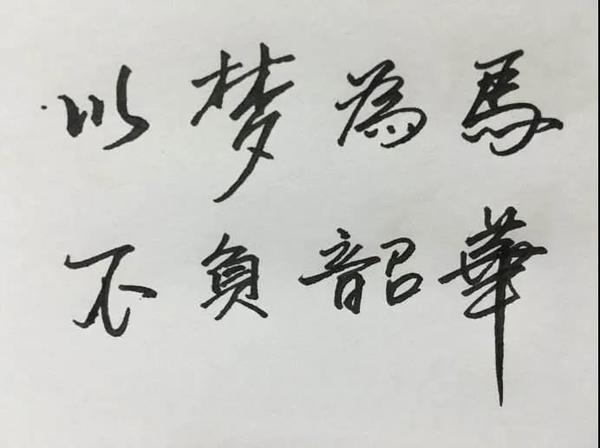 以梦為馬
不負韶華